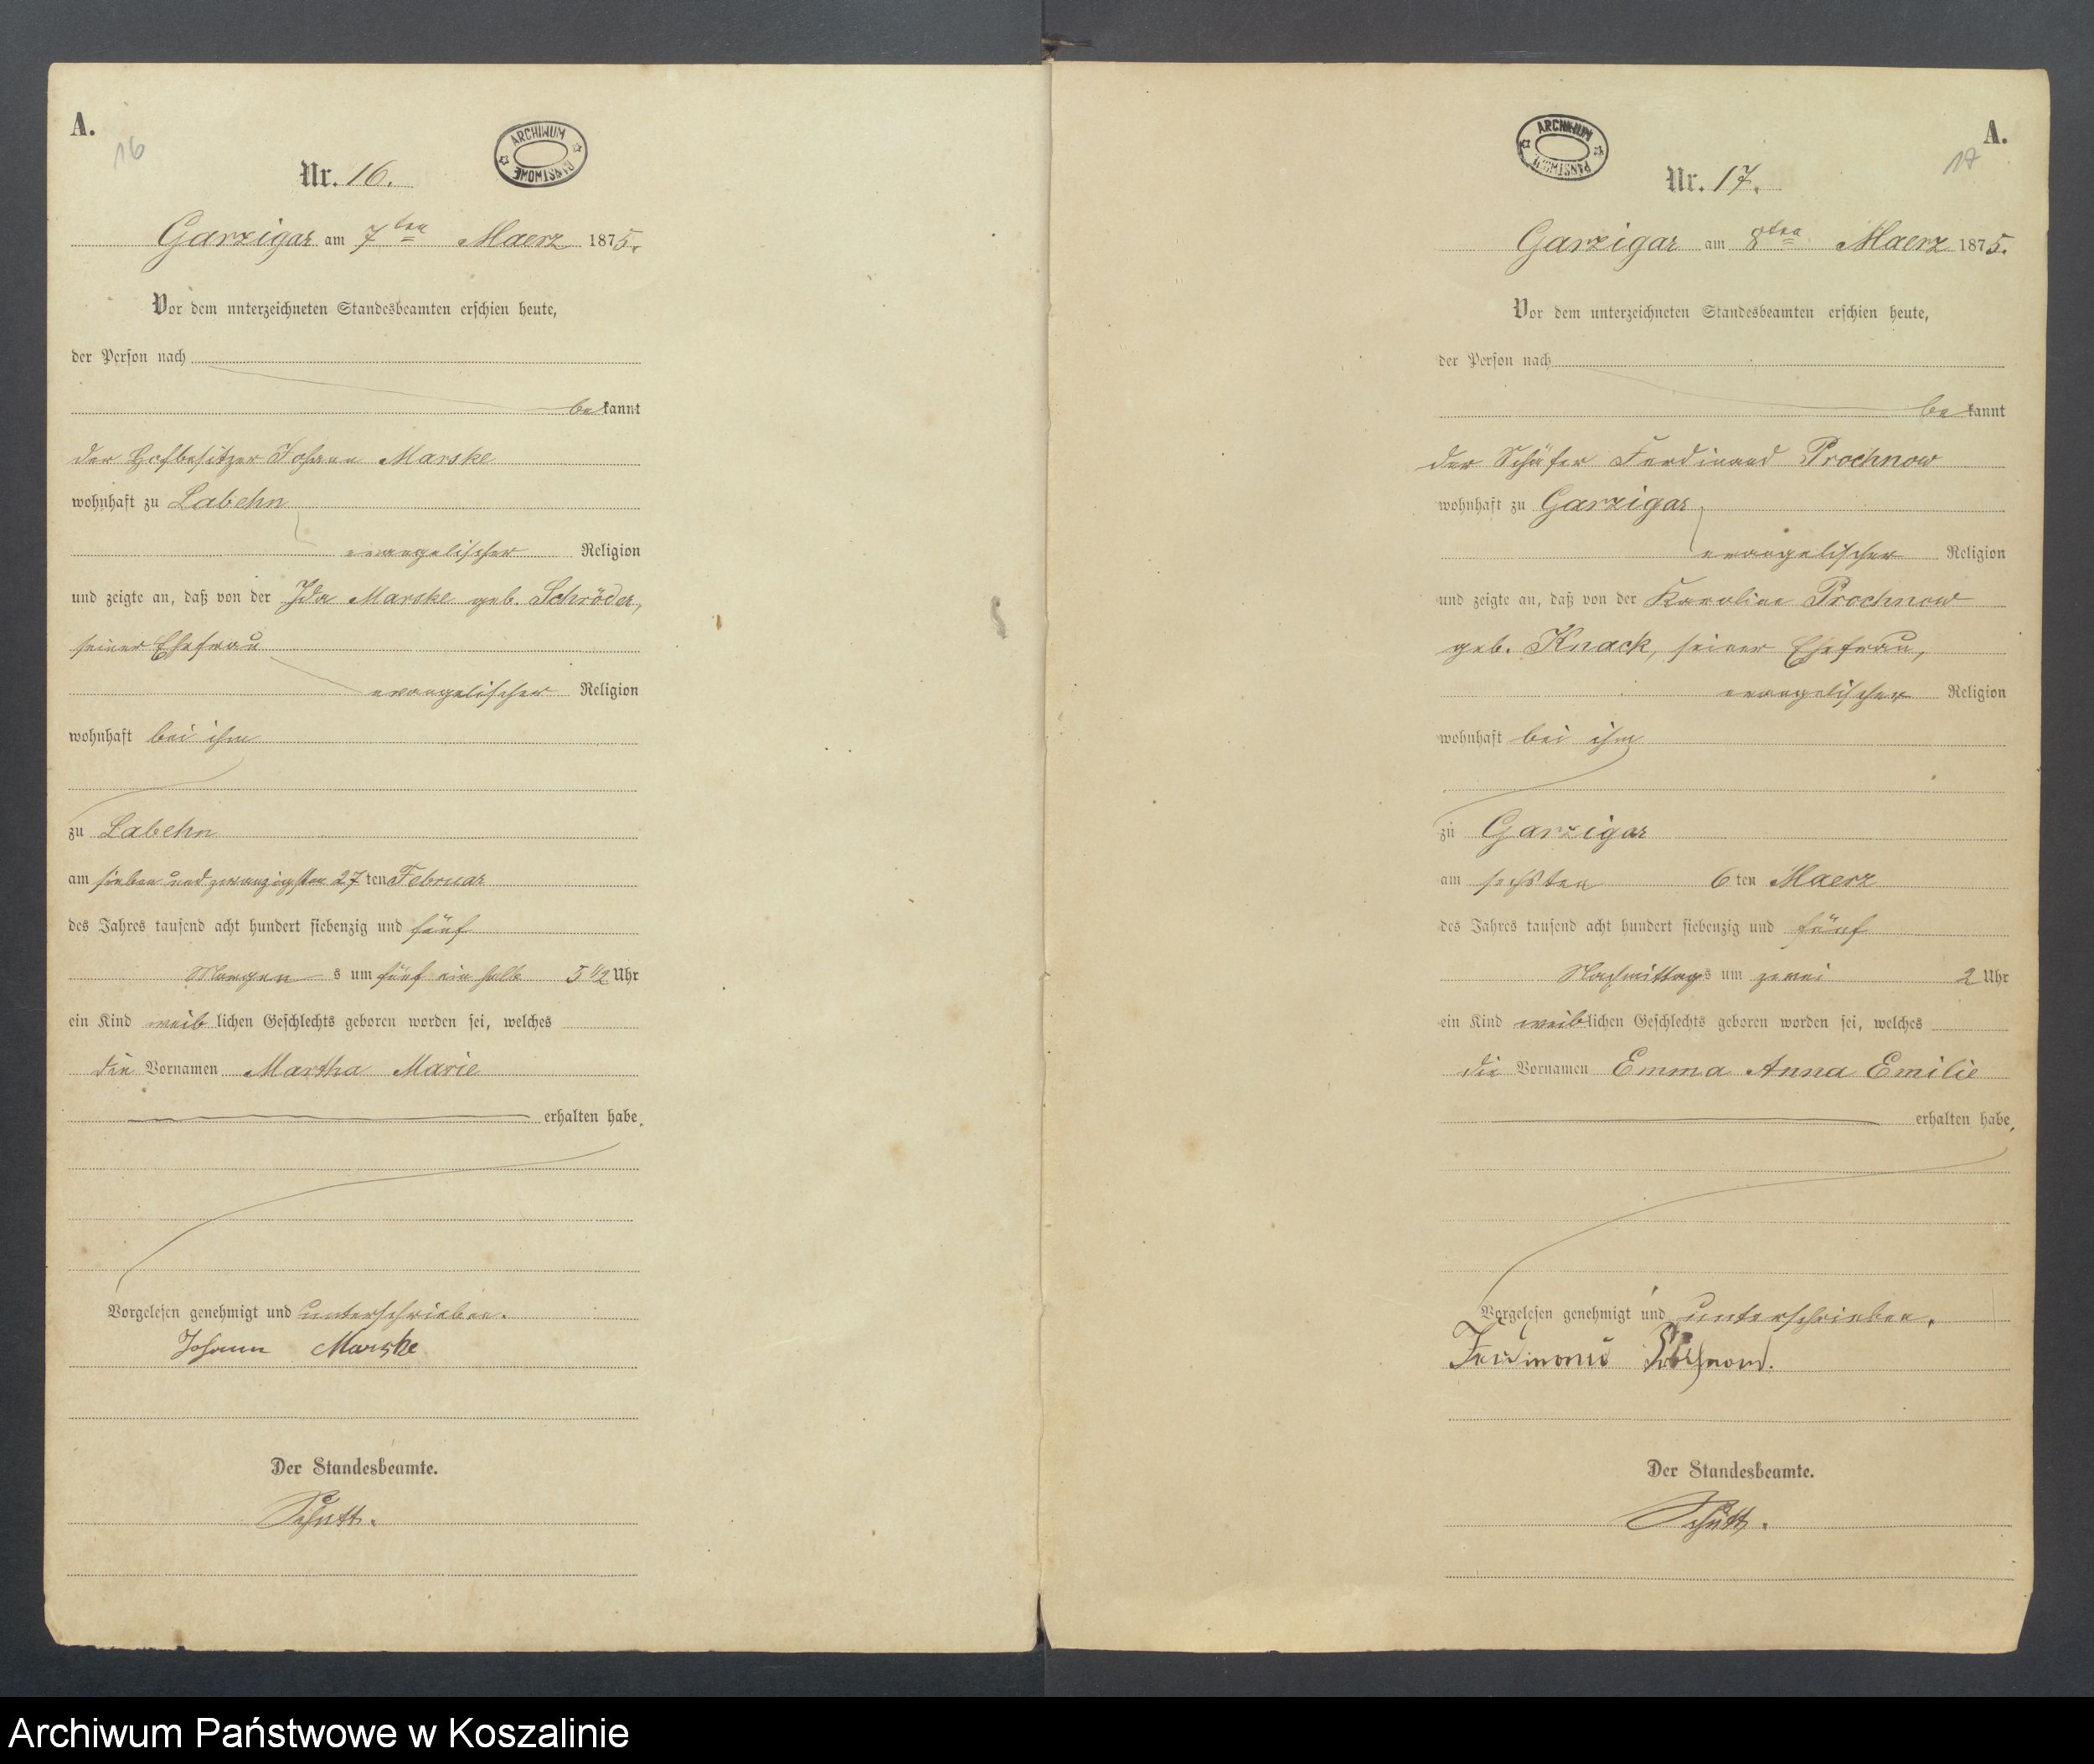 A.
16
ARCHIWUM PAŃSTWOWE
Nr. 16.
Garzigar am 7ten Maerz 1875.
Vor dem unterzeichneten Standesbeamten erschien heute,
der Person nach
bekannt
der Hofbesitzer Johann Marske
wohnhaft zu Labehn
evangelischer Religion
und zeigte an, daß von der Ida Marske geb. Schröder,
seiner Ehefrau
evangelischer Religion
wohnhaft bei ihm
zu Labehn
am sieben und zwanzigsten 27ten Februar
des Jahres tausend acht hundert siebenzig und fünf
Morgens um fünf ein halb 5 1/2 Uhr
ein Kind weiblichen Geschlechts geboren worden sei, welches
die Vornamen Martha Marie
erhalten habe.
Vorgelesen genehmigt und unterschrieben.
Johann Marske
Der Standesbeamte.
Schütt.
A.
17
ARCHIWUM PAŃSTWOWE
Nr. 17.
Garzigar am 8ten Maerz 1875.
Vor dem unterzeichneten Standesbeamten erschien heute,
der Person nach
bekannt
der Schäfer Ferdinand Prochnow
wohnhaft zu Garzigar
evangelischer Religion
und zeigte an, daß von der Karoline Prochnow
geb. Knack, seiner Ehefrau,
evangelischer Religion
wohnhaft bei ihm
zu Garzigar
am sechsten 6ten Maerz
des Jahres tausend acht hundert siebenzig und fünf
Nachmittags um zwei 2 Uhr
ein Kind weiblichen Geschlechts geboren worden sei, welches
die Vornamen Emma Anna Emilie
erhalten habe,
Vorgelesen genehmigt und unterschrieben.
Ferdinand Prochnow.
Der Standesbeamte.
Schütt.
Archiwum Państwowe w Koszalinie